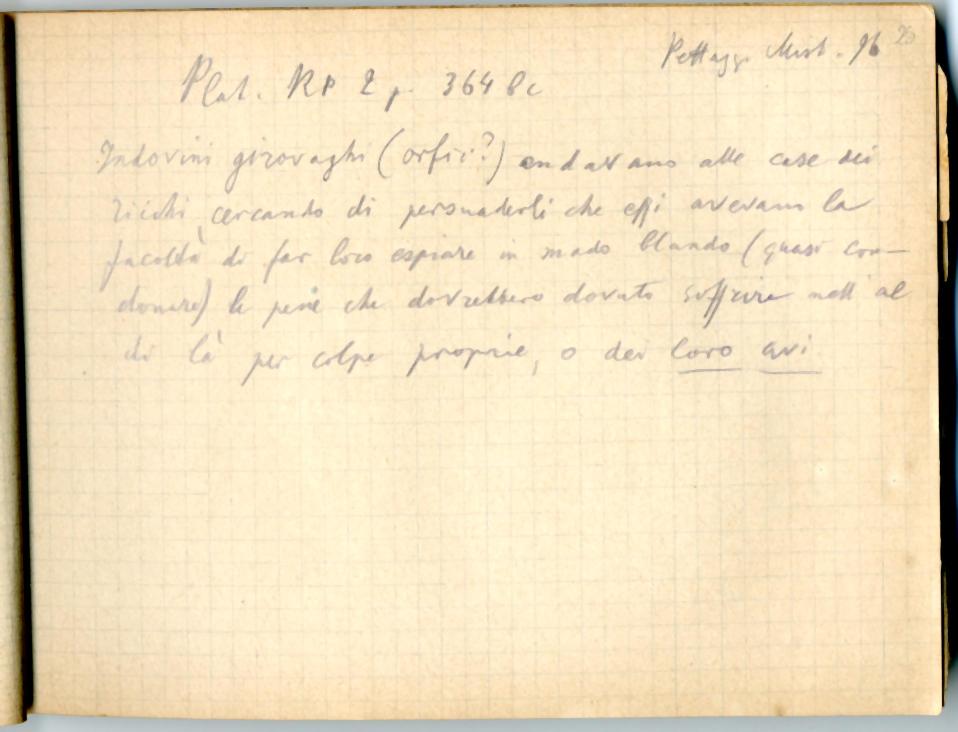 Pettazz. Mist. 96 25
Plat. RP 2 p. 364 bc
Indovini girovaghi (orfici?) andavano alle case dei
ricchi cercando di persuaderli che essi avevano la
facoltà di far loro espiare in modo blando (quasi con-
donare) le pene che dovrebbero dovuto soffrire nell'al
di là per colpe proprie, o dei loro avi